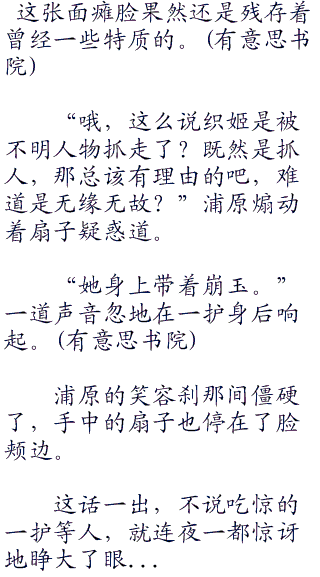 这张面瘫脸果然还是残存着
曾经一些特质的。(有意思书
院)
“哦，这么说织姬是被
不明人物抓走了？既然是抓
人，那总该有理由的吧，难
道是无缘无故？”浦原煽动
着扇子疑惑道。
“她身上带着崩玉。”
一道声音忽地在一护身后响
起。(有意思书院)
浦原的笑容刹那间僵硬
了，手中的扇子也停在了脸
颊边。
这话一出，不说吃惊的
一护等人，就连夜一都惊讶
地睁大了眼...